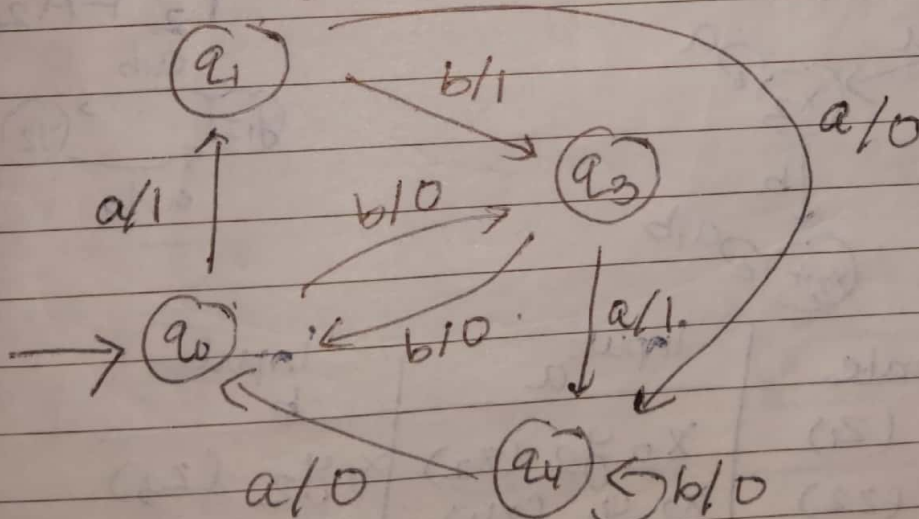 q1
b/1
a/0
q3
a/1
b/0
q0
b/0
a/1
q4
a/0
b/0